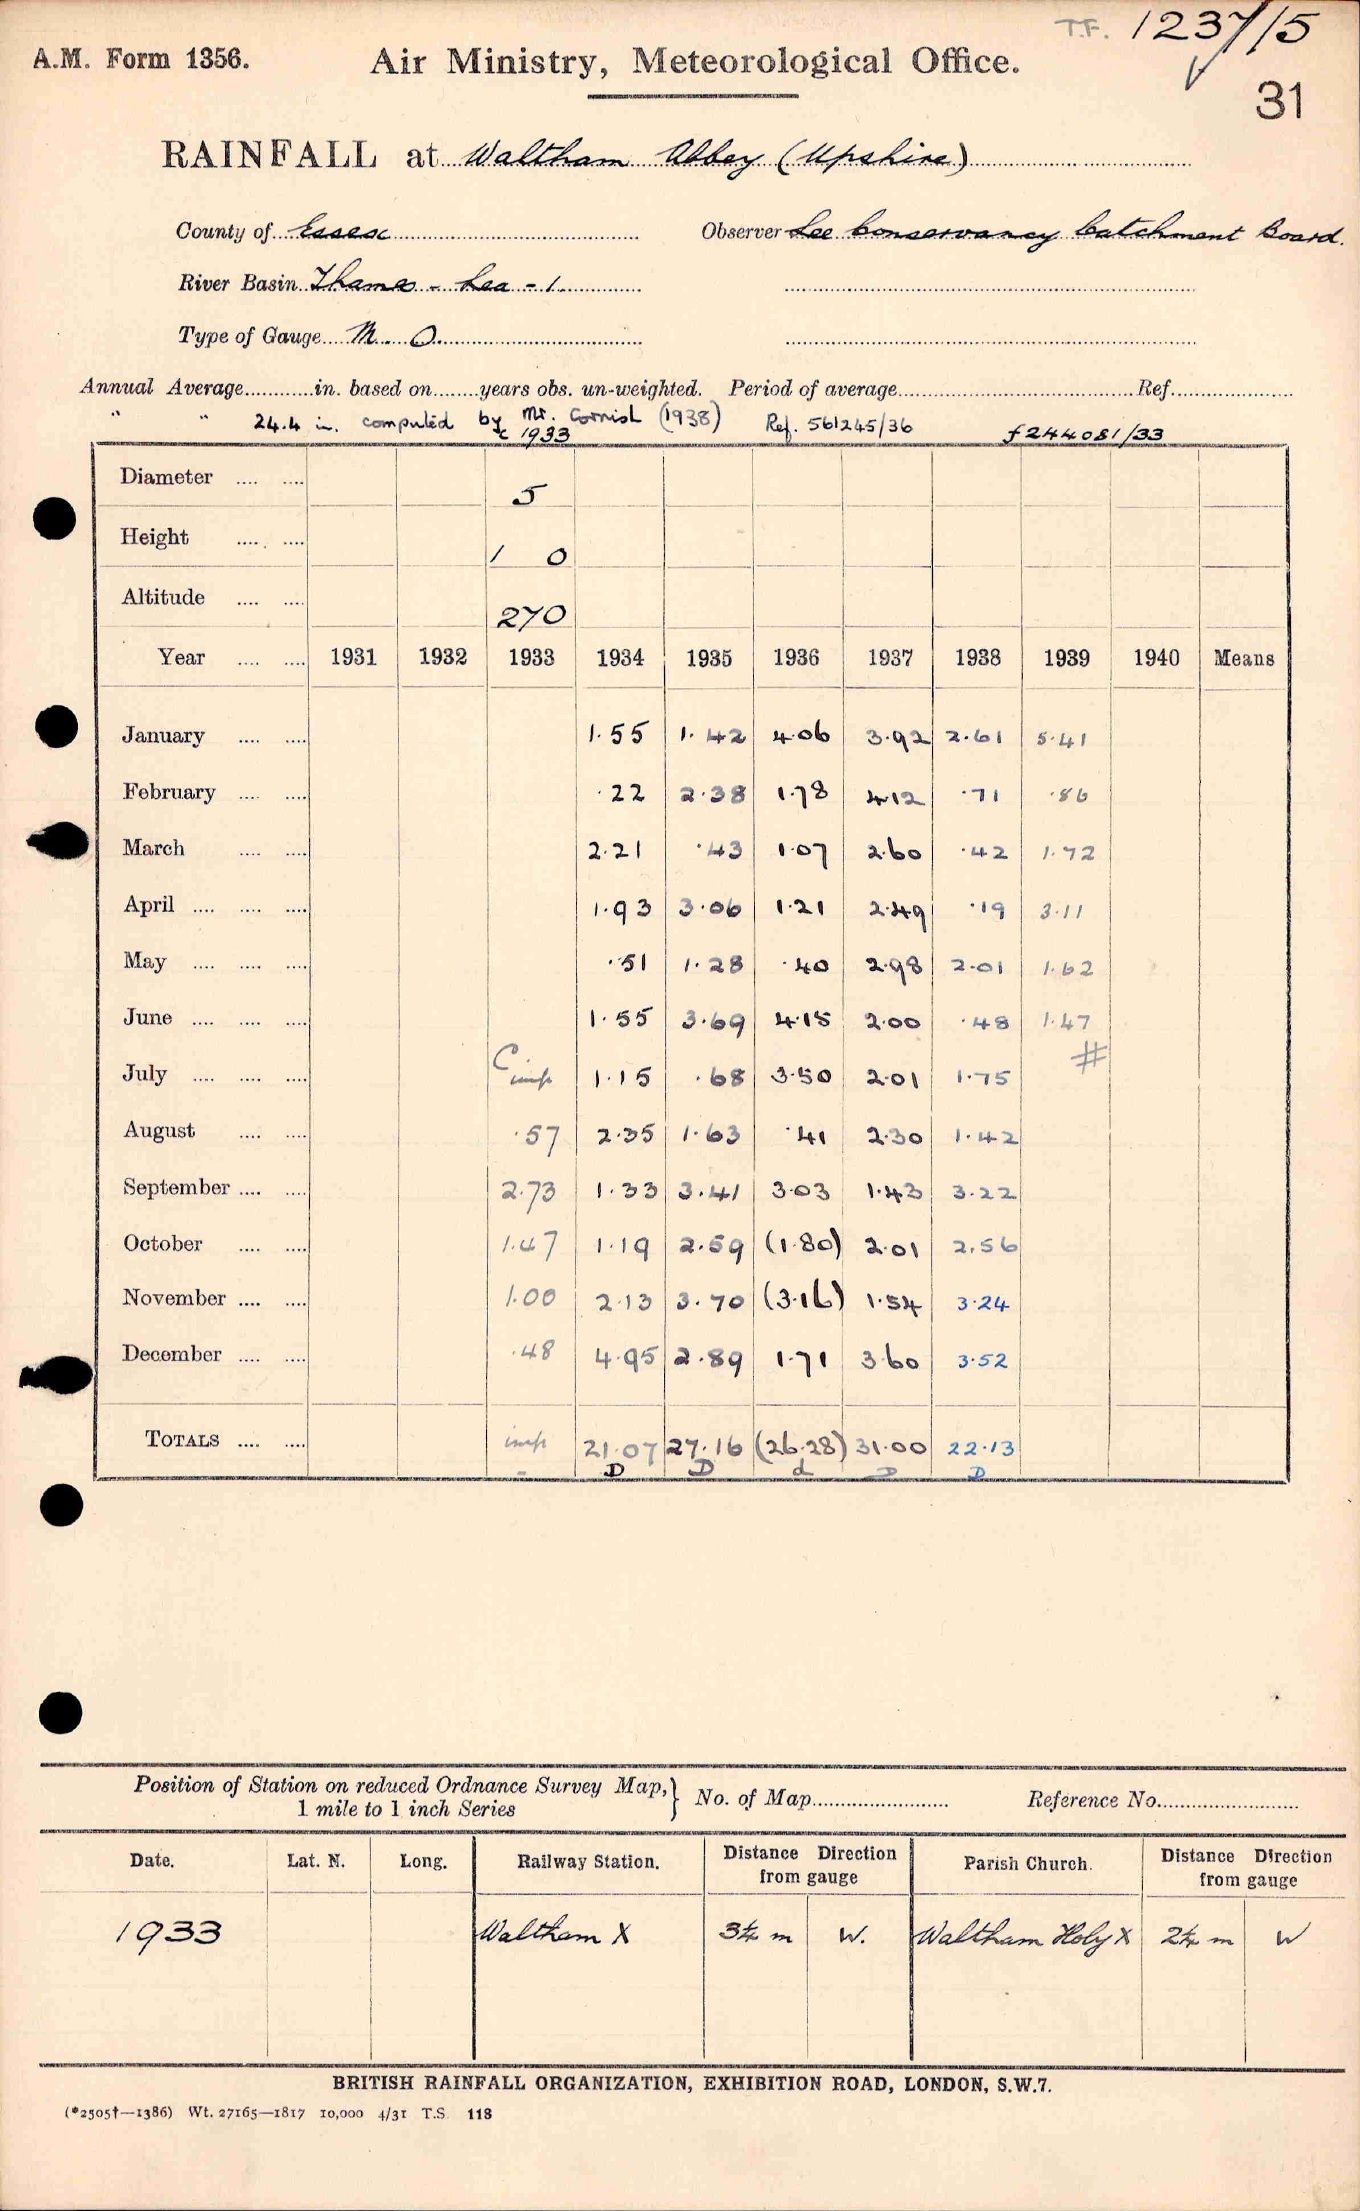 T.F. 1237/5
A.M. Form 1356. Air Ministry, Meteorological Office.
31
RAINFALL at Waltham Abbey (Upshire)
County of Essex Observer Lee Conservancy Catchment Board.
River Basin Thames - Lea - 1.
Type of Gauge M. O.
Annual Average............in. based on........years obs. un-weighted. Period of average................Ref................
" " 24.4 in. computed by Mr. Cornish (1938) Ref. 561245/36 f244081/33
c 1933
Diameter .... .... 5
Height .... .... 1 0
Altitude .... .... 270
Year .... .... 1931 1932 1933 1934 1935 1936 1937 1938 1939 1940 Means
January .... .... 1.55 1.42 4.06 3.92 2.61 5.41
February .... .... .22 2.38 1.78 4.12 .71 .86
March .... .... 2.21 .43 1.07 2.60 .42 1.72
April .... .... .... 1.93 3.06 1.21 2.49 .19 3.11
May .... .... .... .51 1.28 .40 2.98 2.01 1.62
June .... .... .... 1.55 3.69 4.15 2.00 .48 1.47
July .... .... .... C imp 1.15 .68 3.50 2.01 1.75 #
August .... .... .57 2.35 1.63 .41 2.30 1.42
September .... .... 2.73 1.33 3.41 3.03 1.43 3.22
October .... .... 1.47 1.19 2.59 (1.80) 2.01 2.56
November .... .... 1.00 2.13 3.70 (3.16) 1.54 3.24
December .... .... .48 4.95 2.89 1.71 3.60 3.52
TOTALS .... .... imp 21.07 27.16 (26.28) 31.00 22.13
D D d D D
Position of Station on reduced Ordnance Survey Map,} No. of Map........................ Reference No.........................
1 mile to 1 inch Series
Date. Lat. N. Long. Railway Station. Distance Direction from gauge Parish Church. Distance Direction from gauge
1933 Waltham X 3¼ m W. Waltham Holy X 2¼ m W
BRITISH RAINFALL ORGANIZATION, EXHIBITION ROAD, LONDON, S.W.7.
(*2505†—1386) Wt. 27165—1817 10,000 4/31 T.S. 118